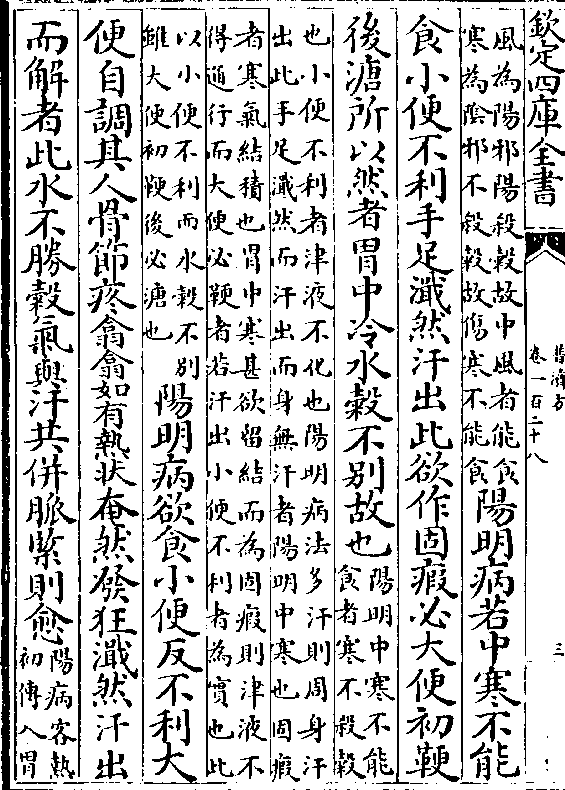 欽定四庫全書
普濟方
卷一百二十八
三
風為陽邪陽殺穀故中風者能食
寒為陰邪不殺穀故傷寒不能食
陽明病若中寒不能
食小便不利手足濈然汗出此欲作固瘕必大便初鞕
後溏所以然者胃中冷水穀不別故也
陽明中寒不能
食者寒不殺穀
也小便不利者津液不化也陽明病法多汗則周身汗
出此手足濈然而汗出而身無汗者陽明中寒也固瘕
者寒氣結積也胃中寒甚欲留結而為固瘕則津液不
得通行而大便必鞕者若汗出小便不利者為實也此
以小便不利而水穀不別
雖大便初鞕後必溏也
陽明病欲食小便反不利大
便自調其人骨節疼翕翕如有熱狀奄然發狂濈然汗出
而解者此水不勝穀氣與汗共併脈緊則愈
陽病客熱
初傳入胃